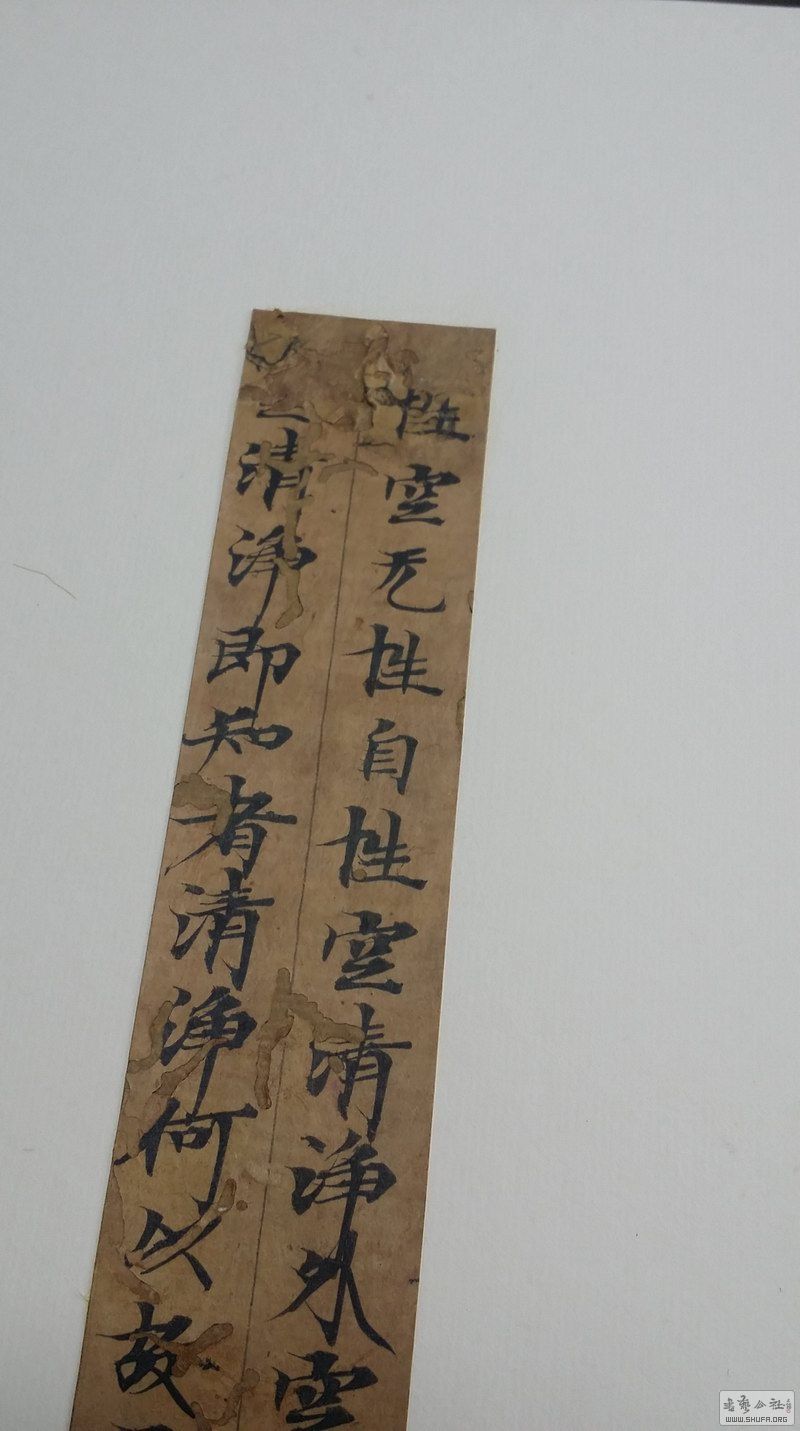 性空无性自性空清浄外空
清浄即知者清浄何以故
書藝公社
WWW.SHUFA.ORG